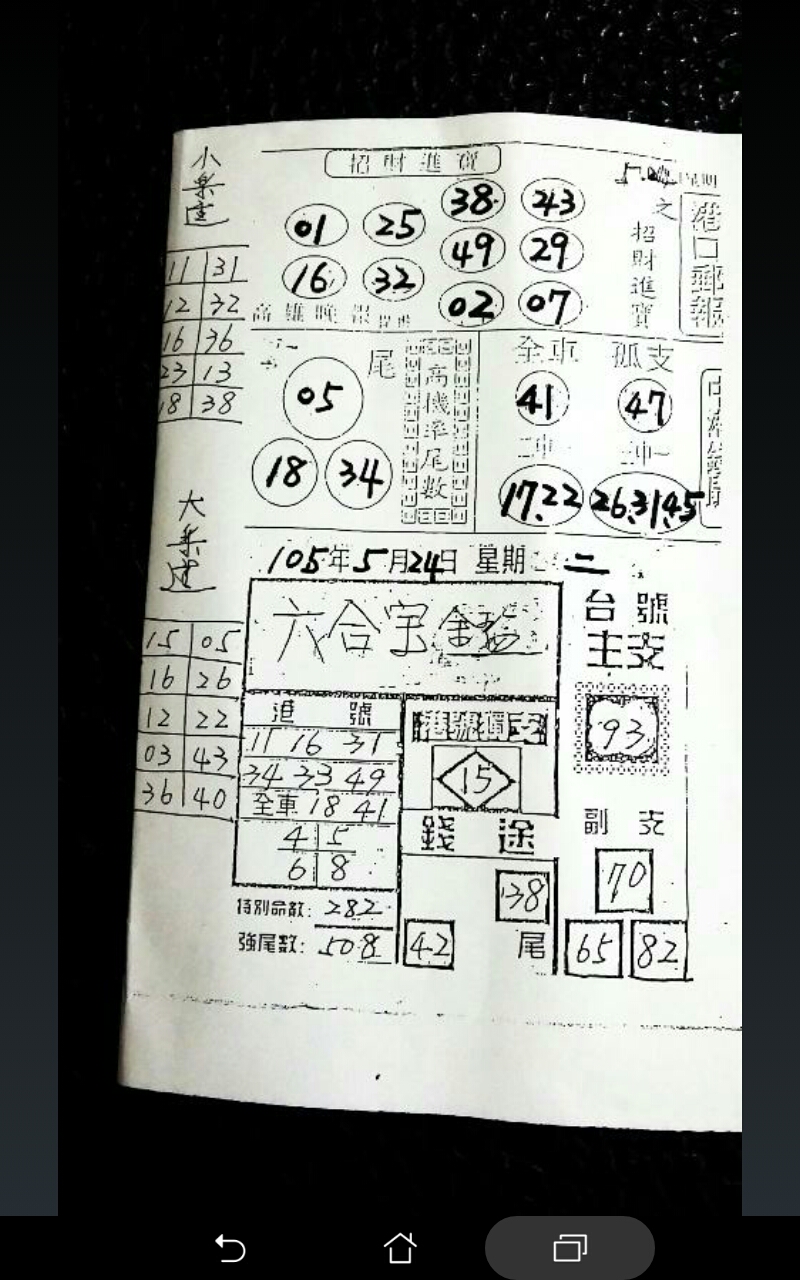 小樂透
11 31
12 32
16 36
23 13
18 38
大樂透
15 05
16 26
12 22
03 43
36 40
招財進寶
38 43
01 25
49 29
16 32
02 07
高雄
之招財進寶
港口郵報
尾
05
18 34
高機率尾數
全車 孤支
41 47
17.22 26.31.45
105年5月24日 星期二
六合字
港號
11 16 31
34 33 49
全車 18 41
4 5
6 8
特別命數: 282
強尾數: 508
港號獨支
15
錢途
38
42 尾
台號
主支
93
副支
70
65 82